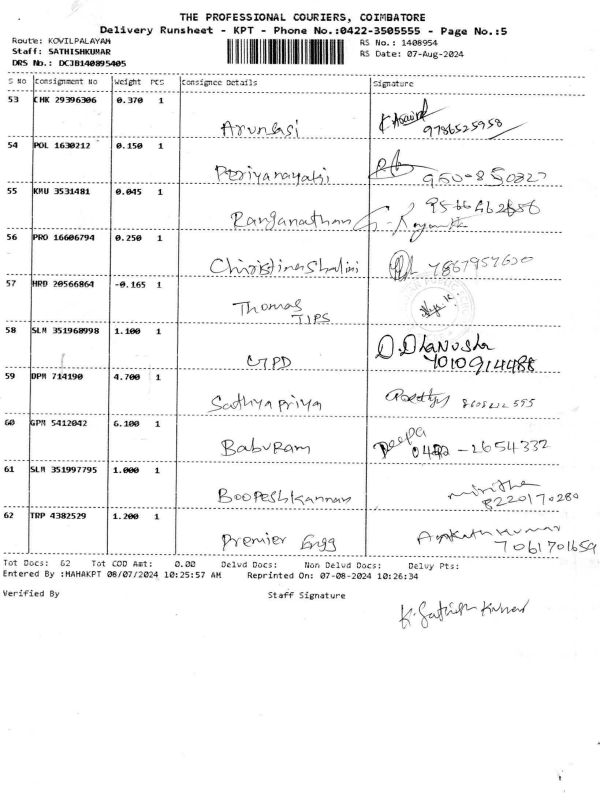 THE PROFESSIONAL COURIERS, COIMBATORE
Delivery Runsheet - KPT - Phone No.:0422-3505555 - Page No.:5
Route: KOVILPALAYAM
RS No.: 1408954
Staff: SATHISHKUMAR
RS Date: 07-Aug-2024
DRS No.: DCJB140895405
S No Consignment No Weight PCS Consignee Details Signature
53 CHK 29396306 0.370 1
Arunasi
9786525958
54 POL 1630212 0.150 1
Periyanayaki
55 KMU 3531481 0.045 1
Ranganathan
56 PRO 16606794 0.250 1
Christina Shalini 7867957630
57 HRD 20566864 -0.165 1
Thomas
TIPS
58 SLM 351968998 1.100 1
D. Dhanusha
GTPD 7010914488
59 DPM 714190 4.700 1
Sathyapriya 8608212555
60 GPM 5412042 6.100 1
Deepa
BabuRam 0422-2654332
61 SLM 351997795 1.000 1
Boopeshkannan 8220170280
62 TRP 4382529 1.200 1
Premier Engg 7061701659
Tot Docs: 62 Tot COD Amt: 0.00 Delvd Docs: Non Delvd Docs: Delvy Pts:
Entered By :MAHAKPT 08/07/2024 10:25:57 AM Reprinted On: 07-08-2024 10:26:34
Verified By Staff Signature
K. Sathish Kumar